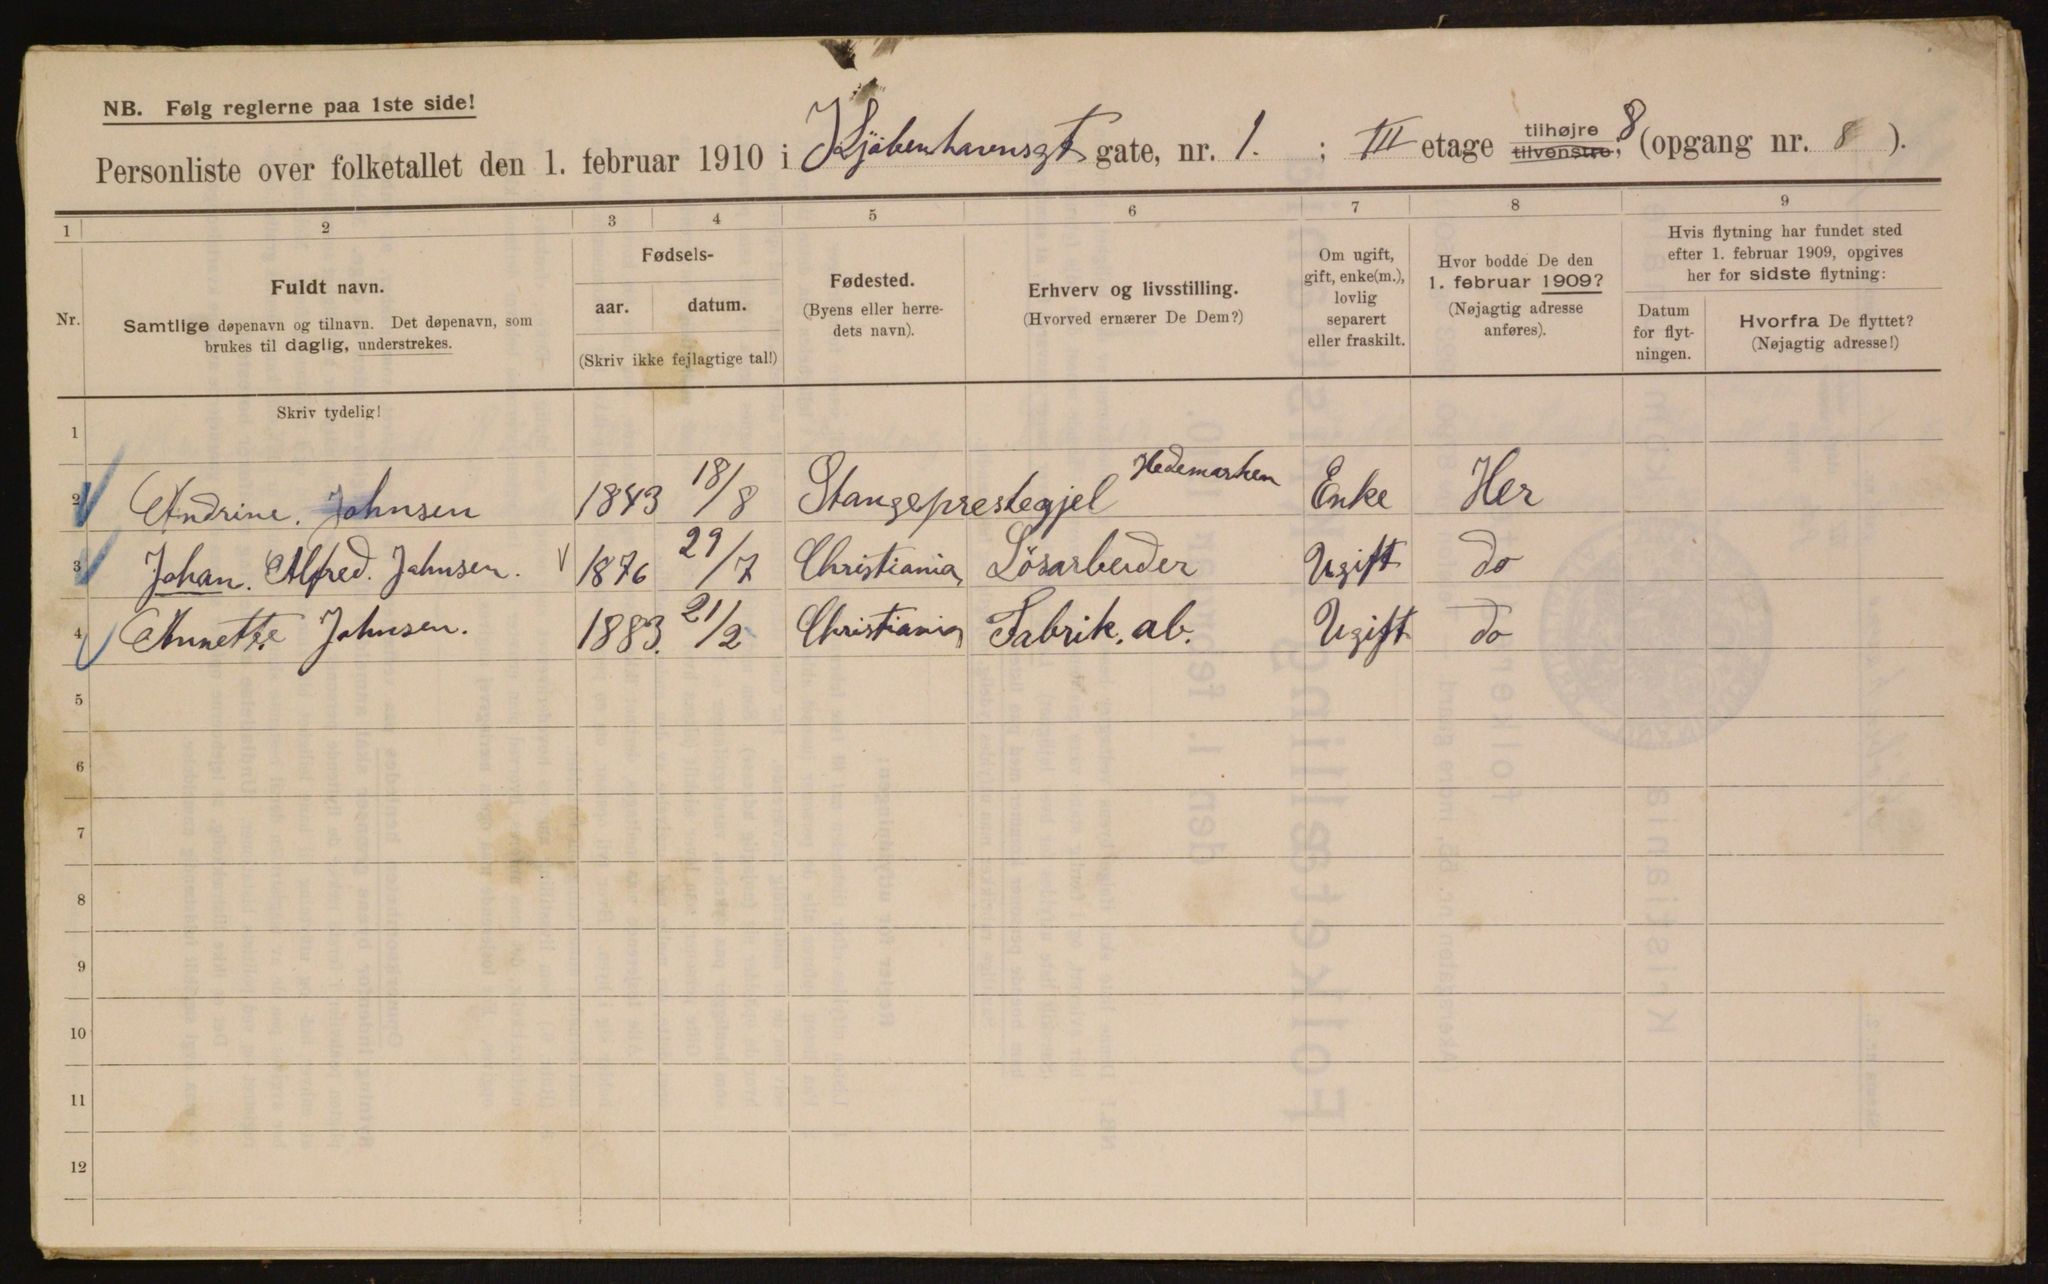 NB. Følg reglerne paa 1ste side!
Personliste over folketallet den 1. februar 1910 i Kjöbenhavnsgt gate, nr. 1. ; III etage tilhøjre tilvenstre; 8 (opgang nr. 8 ).
1 2 3 4 5 6 7 8 9
Nr.
Fuldt navn.
Samtlige døpenavn og tilnavn. Det døpenavn, som
brukes til daglig, understrekes.
Fødsels-
aar. datum.
(Skriv ikke fejlagtige tal!)
Fødested.
(Byens eller herre-
dets navn).
Erhverv og livsstilling.
(Hvorved ernærer De Dem?)
Om ugift,
gift, enke(m.),
lovlig
separert
eller fraskilt.
Hvor bodde De den
1. februar 1909?
(Nøjagtig adresse
anføres).
Hvis flytning har fundet sted
efter 1. februar 1909, opgives
her for sidste flytning:
Datum
for flyt-
ningen.
Hvorfra De flyttet?
(Nøjagtig adresse!)
Skriv tydelig!
1
2 Andrine. Johnsen 1843 18/8 Stangeprestegjel Hedemarken Enke Her
3 Johan. Alfred. Johnsen. V 1876 29/7 Christiania, Lösarbeider Ugift do
4 Annette Johnsen. 1883. 21/2 Christiania, Fabrik. ab. Ugift do
5
6
7
8
9
10
11
12